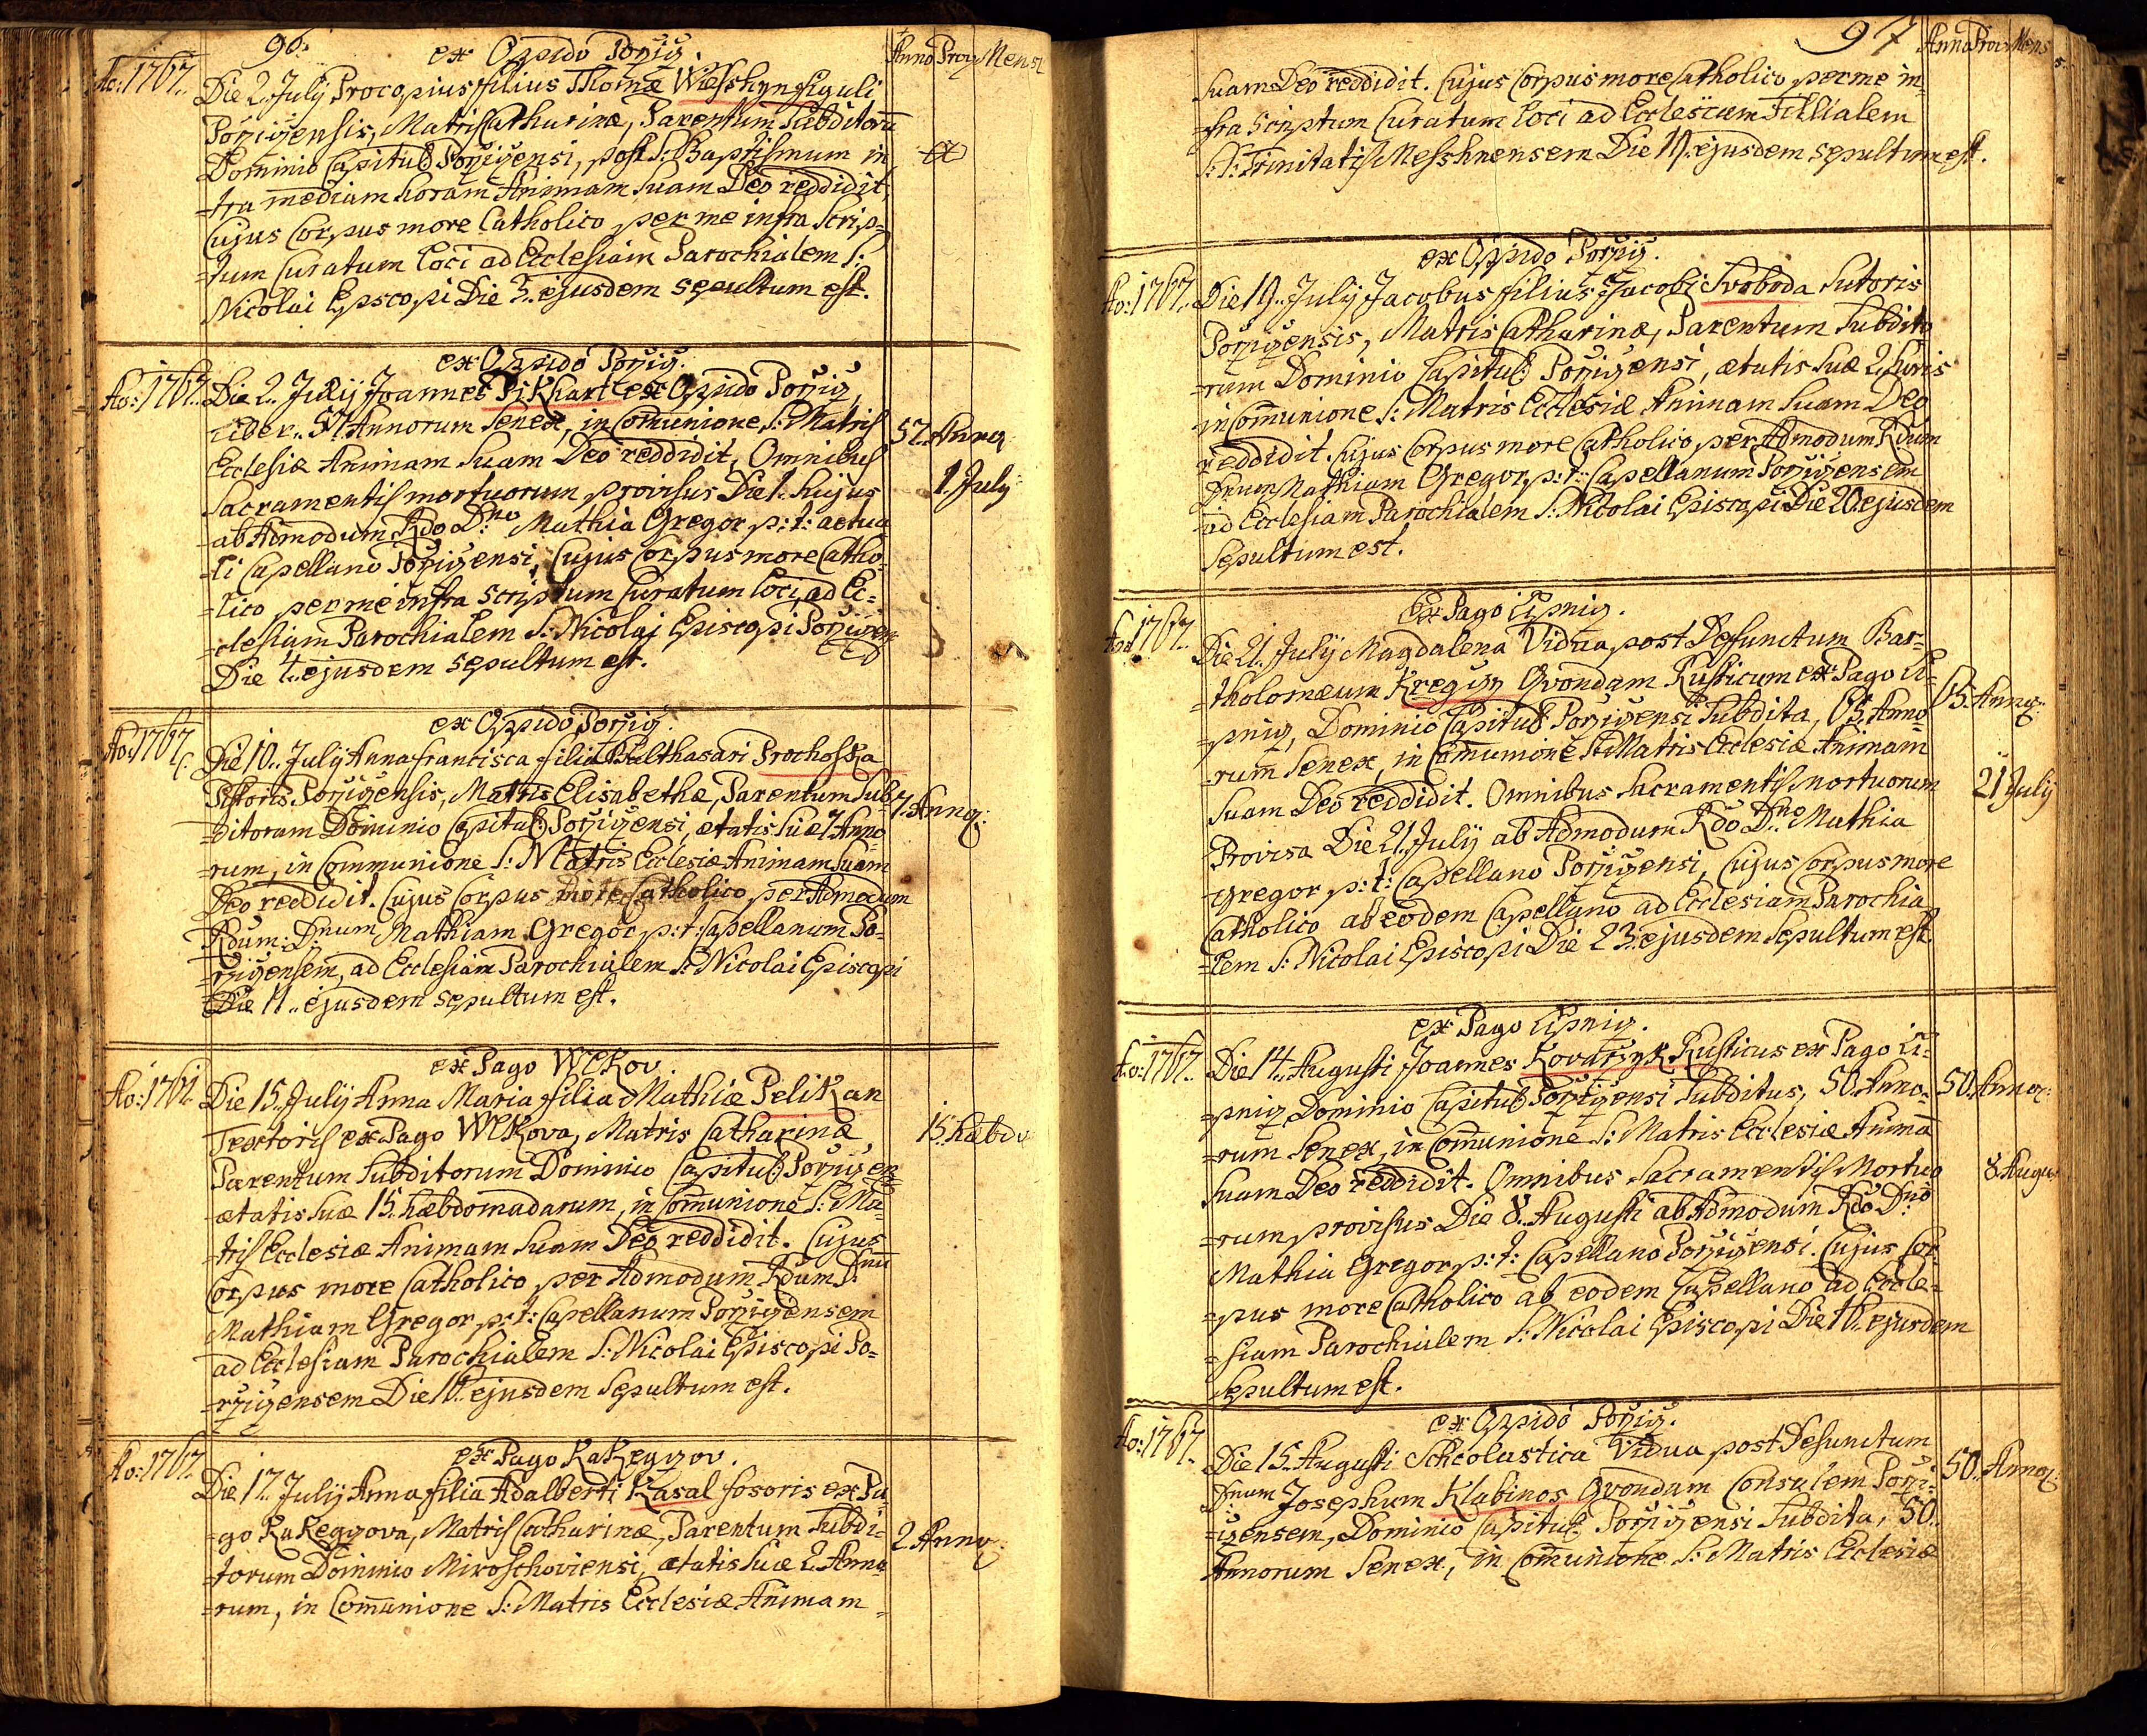 96.
ex Oppido Porziz.
Anno Prov. Mens
Ao: 1767. Die 2. July Procopius filius Thomæ Wiesskyn figuli
Porzizensis, Matris Catharinæ, Parentum Subditorū
Dominio Capituli Porzizensi, post S: Baptismum in
=fra mediam horam Animam suam Deo reddidit,
Cujus Corpus more Catholico per me infra Scrip=
=tum Curatum Loci ad Ecclesiam Parochialem S:
Nicolai Epscopi Die 3. ejusdem sepultum est.
ex Oppido Porziz.
Ao: 1767. Die 2. July Joannes Pikhart ex Oppido Porziz,
Liber.. 57. Annorum Senex, in Com̄unione S: Matris
57. Annor.
Ecclesiæ Animam Suam Deo reddidit, Omnibus
Sacramentis mortuorum provisus Die 1. hujus
1. July
ab Admodum Rdo D:no Mathia Gregor p: t: actua
=li Capellano Porzizensi, Cujus Corpus more Catho=
=lico per me infra Scriptum Curatum Loci, ad Ec=
=clesiam Parochialem S: Nicolai Episcopi Porzizen
Die 4. ejusdem sepultum est.
ex Oppido Porziz.
Ao: 1767. Die 10. July Anna Francisca filia Balthasari Prochoska
Pistoris Porzizensis, Matris Elisabethæ, Parentum Sub=
7. Annor:
=ditorum Dominio Capituli Porzizensi, ætatis suæ 7 Anno
=rum, in Communione S: Matris Ecclesiæ Animam Suam
Deo reddidit. Cujus Corpus more Catholico per Admodum
Rdum: D:num Mathiam Gregor p: t: Capellanum Po=
=rzizensem, ad Ecclesiam Parochialem S: Nicolai Episcopi
Die 11.. ejusdem sepultum est.
ex Pago Wlkov.
Ao: 1767. Die 15. July Anna Maria filia Mathiæ Pelikan
Textoris ex Pago Wlkova, Matris Catharinæ,
15. hæbdo
Parentum Subditorum Dominio Capituli Porzizen
ætatis suæ 15. hæbdomadarum, in Com̄unione S: Ma=
=tris Ecclesiæ Animam suam Deo reddidit. Cujus
Corpus more Catholico per Admodum Rdum D:num
Mathiam Gregor p: t: Capellanum Porzizensem
ad Ecclesiam Parochialem S: Nicolai Episcopi Po=
=rzizensem Die 16. ejusdem Sepultum est.
ex Pago Kakegzov.
Ao: 1767. Die 17. July Anna filia Adalberti Kasal fosoris ex Pa=
=go Kakegzova, Matris Catharinæ, Parentum Subdi=
2. Annor:
=torum Dominio Miroschoviensi, ætatis suæ 2. Anno
=rum, in Com̄unione S: Matris Ecclesiæ Animam
97
Anno Prov. Mens
suam Deo reddidit. Cujus Corpus more Catholico per me in=
=fra Scriptum Curatum Loci ad Ecclesiam Filialem
S:S: Trinitatis Messhnensem Die 19. ejusdem sepultum est.
ex Oppido Porziz.
Ao: 1767. Die 19. July Jacobus filius Jacobi Svoboda Sutoris
Porzizensis, Matris Catharinæ, Parentum Subdito
=rum Dominio Capituli Porzizensi, ætatis Suæ 2. horis
in Com̄unione S: Matris Ecclesiæ Animam suam Deo
reddidit. Cujus Corpus more Catholico per Admodum Rdum
Dnum Mathiam Gregor p: t: Capellanum Porzizensem
ad Ecclesiam Parochialem S: Nicolai Episcopi Die 20. ejusdem
Sepultum est.
Ex Pago Lipniz.
Ao: 1767. Die 21. July Magdalena Vidua post Defunctum Bar=
=tholomæum Kregzy Qvondam Rusticum ex Pago Li=
65. Annor:
=pniz, Dominio Capituli Porzizensi Subdita, 65. Anno
=rum Senex, in Com̄unione S: Matris Ecclesiæ Animam
Suam Deo reddidit. Omnibus Sacramentis mortuorum
21 July
Provisa Die 21. July ab Admodum Rdo D:no Mathia
Gregor p: t: Capellano Porzizensi, Cujus Corpus more
Catholico ab eodem Capellano ad Ecclesiam Parochia
=lem S: Nicolai Episcopi Die 23. ejusdem Sepultum est.
ex Pago Lipniz.
Ao: 1767. Die 14. Augusti Joannes Kovarzyk Rusticus ex Pago Li=
=pniz Dominio Capituli Porzizensi Subditus, 50. Anno=
50. Annor:
=rum Senex, in Com̄unione S: Matris Ecclesiæ Animā
Suam Deo reddidit. Omnibus Sacramentis Mortuo
8. Augus
=rum provisus Die 8. Augusti ab Admodum Rdo D:no
Mathia Gregor p: t: Capellano Porzizensi. Cujus Cor=
=pus more Catholico ab eodem Capellano ad Eccle=
=siam Parochialem S: Nicolai Episcopi Die 16. ejusdem
Sepultum est.
ex Oppido Porziz.
Ao: 1767. Die 15. Augusti Scholastica Vidua post Defunctum
Dnum Josephum Klabinos Qvondam Consulem Porzi=
50. Annor:
=zensem, Dominio Capituli Porzizensi Subdita, 50.
Annorum Senex, in Com̄unione S: Matris Ecclesiæ